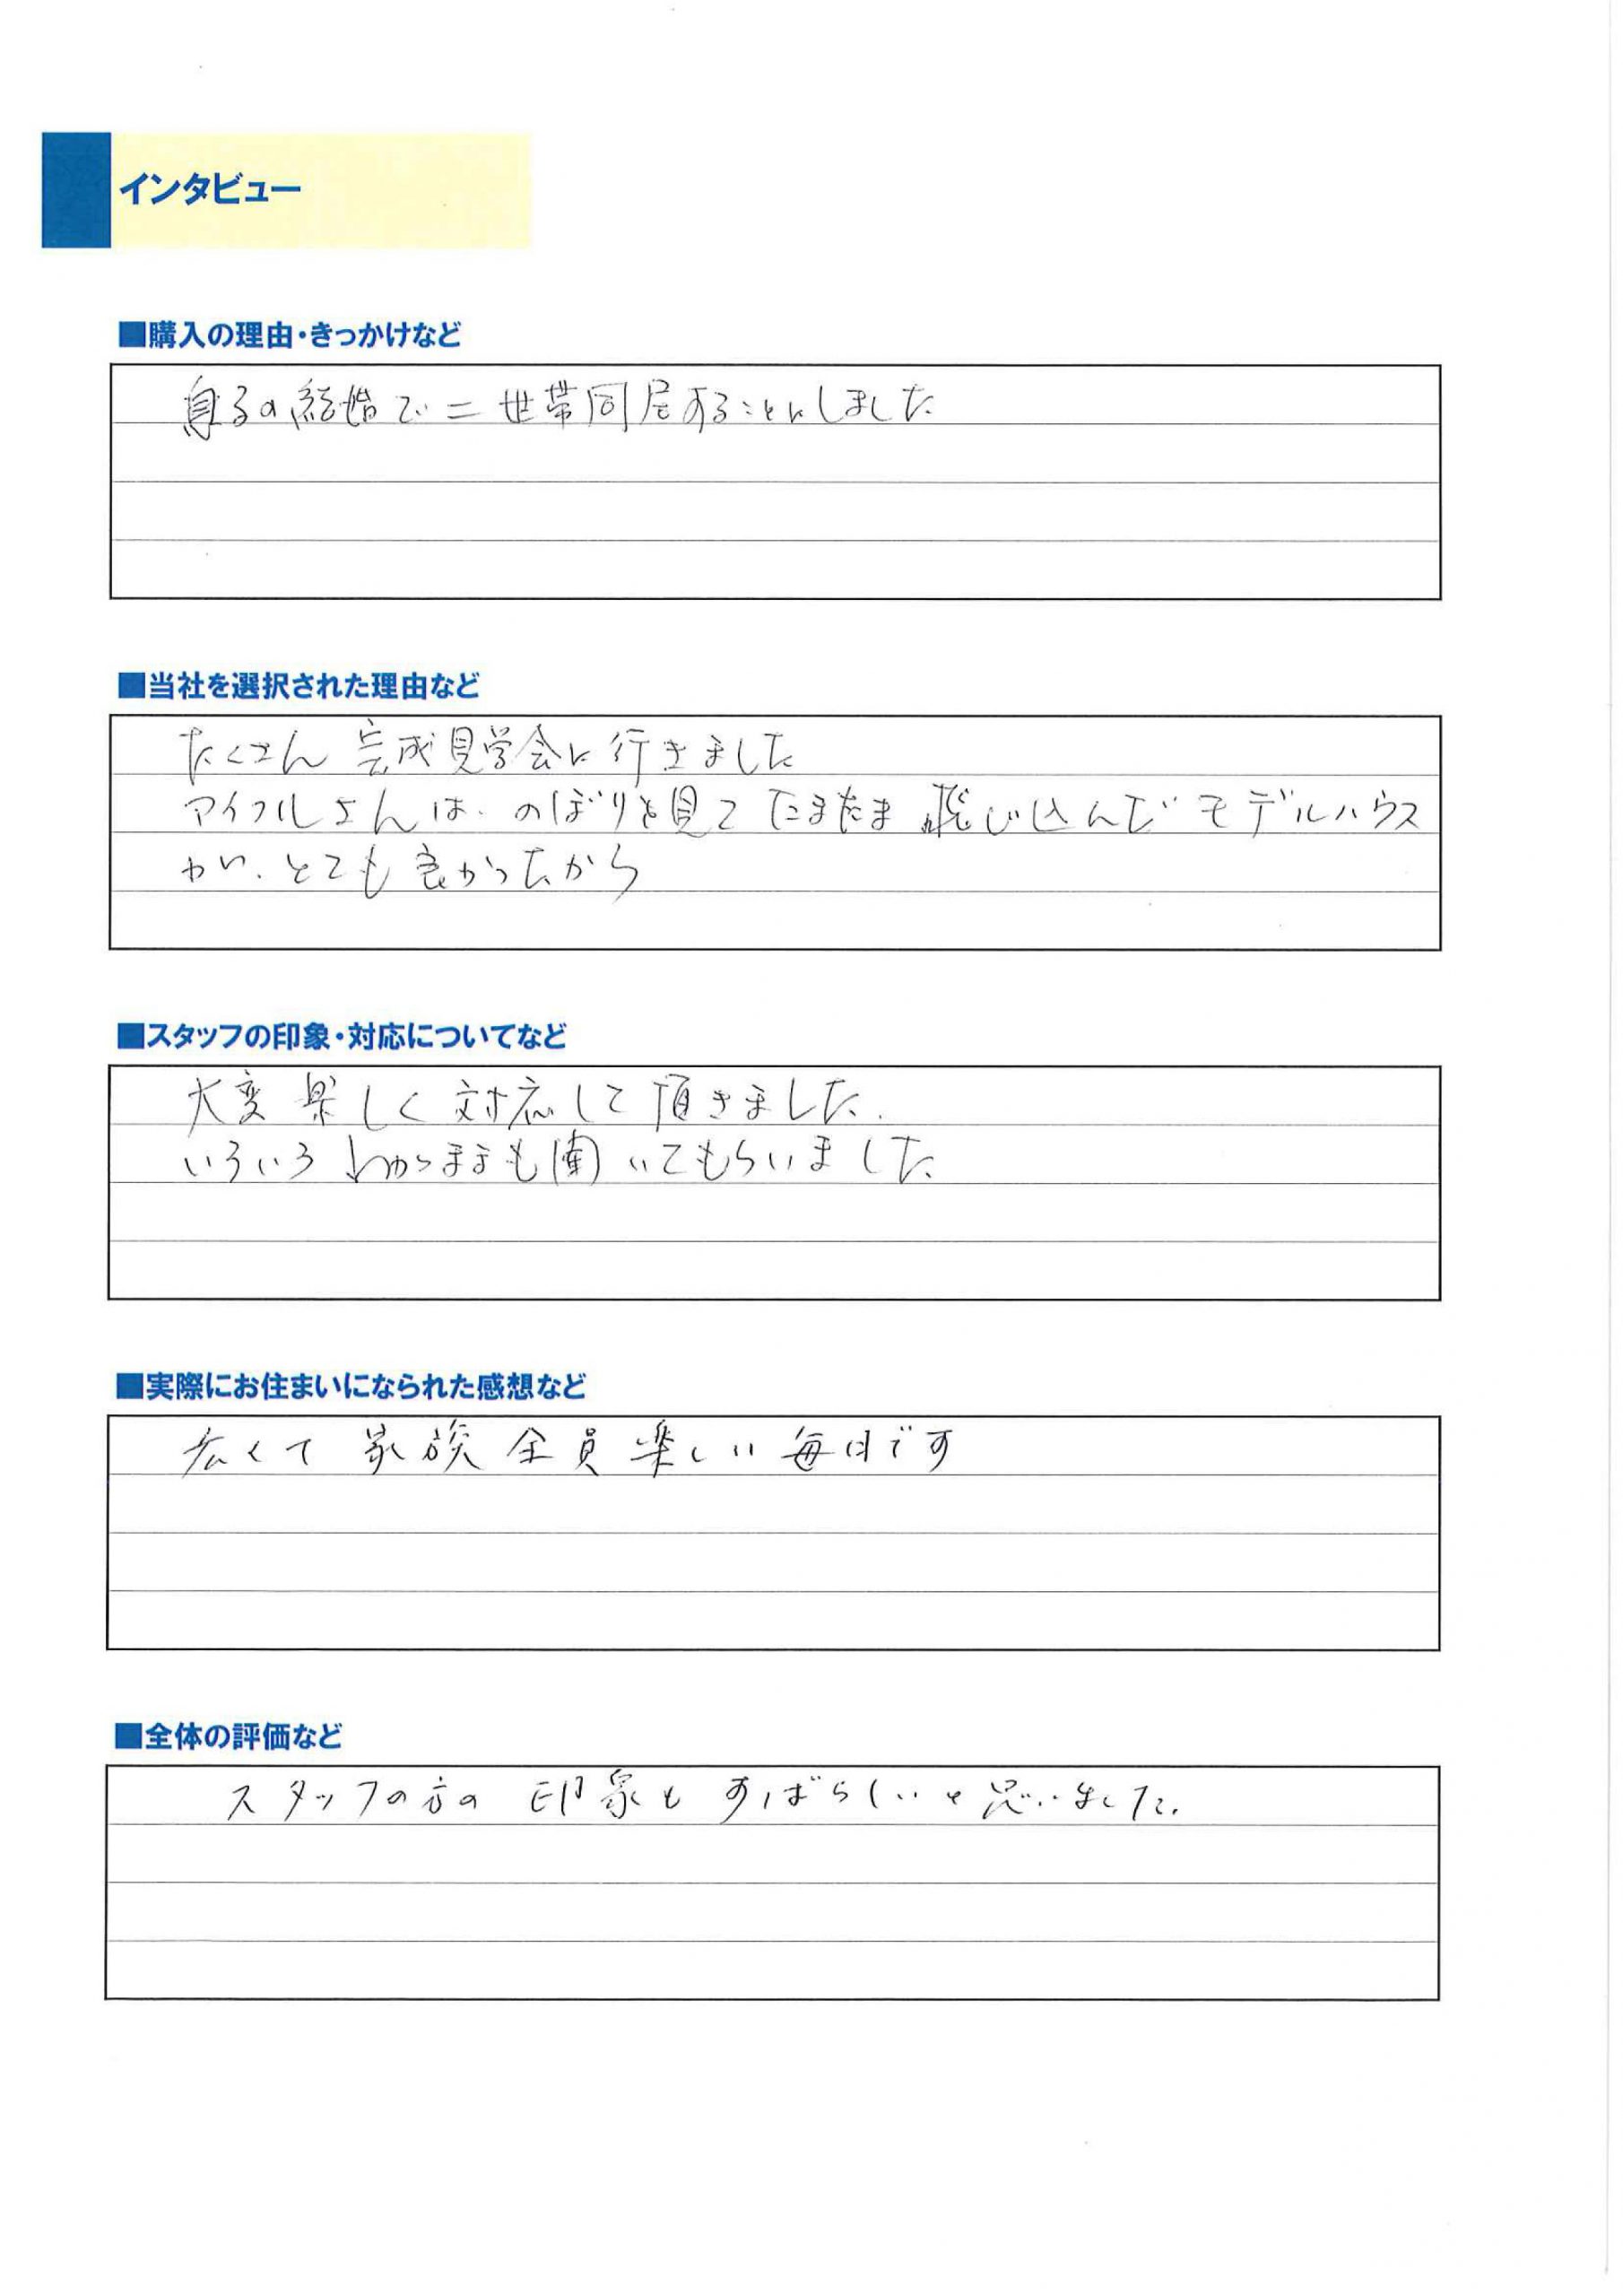 インタビュー
■購入の理由・きっかけなど
息子の結婚で二世帯同居することにしました
■当社を選択された理由など
たくさん 完成見学会に行きました
アイフルさんは、のぼりを見て たまたま 飛び込んで モデルハウス
が、とても良かったから
■スタッフの印象・対応についてなど
大変楽しく対応して頂きました.
いろいろ わがままも聞いてもらいました
■実際にお住まいになられた感想など
広くて 家族全員楽しい毎日です
■全体の評価など
スタッフの方の 印象も すばらしいと思いました.